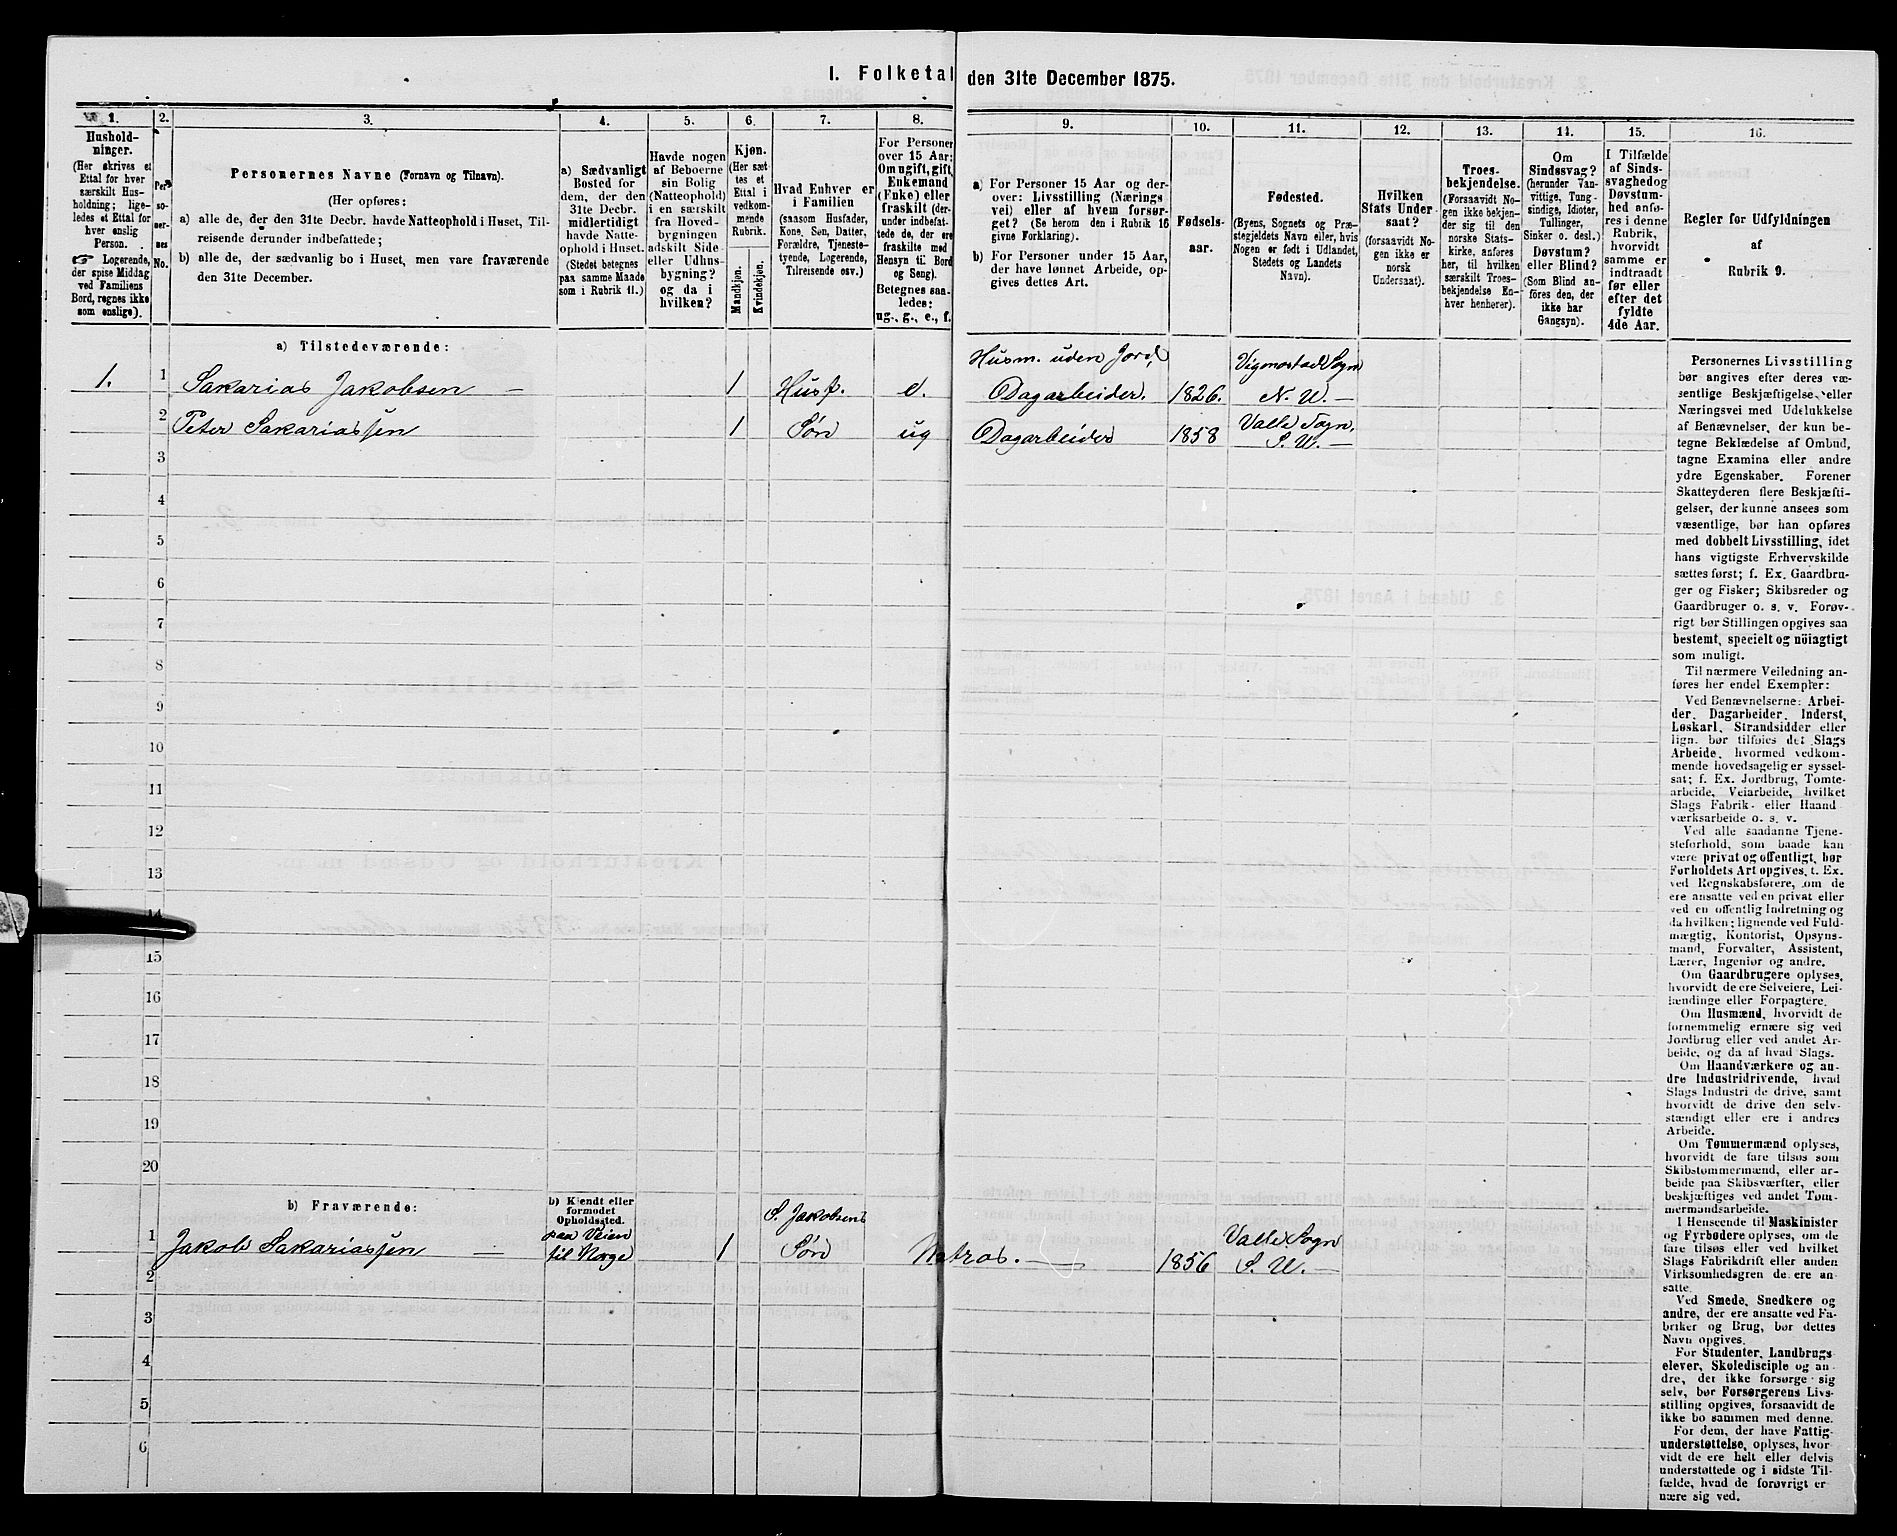 I. Folketal den 31te December 1875.
1.
Hushold-
ninger.
(Her skrives et
Ettal for hver
særskilt Hus-
holdning; lige-
ledes et Ettal for
hver enslig
Person.
☞ Logerende,
der spise Middag
ved Familiens
Bord, regnes ikke
som enslige).
2.
Per-
so-
ner-
nes
No.
3.
Personernes Navne (Fornavn og Tilnavn).
(Her opføres:
a) alle de, der den 31te Decbr. havde Natteophold i Huset, Til-
reisende derunder indbefattede;
b) alle de, der sædvanlig bo i Huset, men vare fraværende
den 31te December.
4.
a) Sædvanligt
Bosted for
dem, der den
31te Decbr.
midlertidigt
havde Natte-
ophold i Huset.
(Stedet betegnes
paa samme Maade
som i Rubrik 11.)
5.
Havde nogen
af Beboerne
sin Bolig
(Natteophold)
i en særskilt
fra Hoved-
bygningen
adskilt Side-
eller Udhus-
bygning?
og da i
hvilken?
6.
Kjøn.
(Her sæt-
tes et
Ettal i
vedkom-
mende
Rubrik.
Mandkjøn.
Kvindekjøn.
7.
Hvad Enhver er
i Familien
(saasom Husfader,
Kone, Søn, Datter,
Forældre, Tjeneste-
tyende, Logerende,
Tilreisende osv.)
8.
For Personer
over 15 Aar:
Om ugift, gift,
Enkemand
(Enke) eller
fraskilt (der-
under indbefat-
tede de, der ere
fraskilte med
Hensyn til Bord
og Seng).
Betegnes saa-
ledes:
ug., g., e., f.
9.
a) For Personer 15 Aar og der-
over: Livsstilling (Nærings-
vei) eller af hvem forsør-
get? (Se herom den i Rubrik 16
givne Forklaring).
b) For Personer under 15 Aar,
der have lønnet Arbeide, op-
gives dettes Art.
10.
Fødsels-
aar.
11.
Fødested.
(Byens, Sognets og Præ-
stegjeldets Navn eller, hvis
Nogen er født i Udlandet,
Stedets og Landets
Navn).
12.
Hvilken
Stats Under-
saat?
(forsaavidt No-
gen ikke er
norsk
Undersaat).
13.
Troes-
bekjendelse.
(Forsaavidt No-
gen ikke bekjen-
der sig til den
norske Stats-
kirke, anføres
her, til hvilken
særskilt Troes-
bekjendelse En-
hver henhører).
14.
Om
Sindssvag?
(herunder Van-
vittige, Tung-
sindige, Idioter,
Tullinger,
Sinker o. desl.)
Døvstum?
eller Blind?
(Som Blind an-
føres den, der
ikke har
Gangsyn).
15.
I Tilfælde
af Sinds-
svaghed og
Døvstum-
hed anfø-
res i denne
Rubrik,
hvorvidt
samme er
indtraadt
før eller
efter det
fyldte
4de Aar.
16.
Regler for Udfyldningen
af
Rubrik 9.
a) Tilstedeværende:
1. 1 Sakarias Jakobsen — 1 Husf. e. Husm. uden Jord, Dagarbeider. 1826. Vigmostad Sogn N. U. —
2 Peter Sakariassen 1 Søn ug Dagarbeider 1858 Valle Sogn, S. U. —
3
4
5
6
7
8
9
10
11
12
13
14
15
16
17
18
19
20
b) Fraværende:
b) Kjendt eller
formodet
Opholdssted.
1 Jakob Sakariassen — paa Veien til Norge 1 S. Jakobsens Søn Matros. — 1856 Valle Sogn S. U. —
2
3
4
5
6
Personernes Livsstilling
bør angives efter deres væ-
sentlige Beskjæftigelse eller
Næringsvei med Udelukkelse
af Benævnelser, der kun be-
tegne Beklædelse af Ombud,
tagne Examina eller andre
ydre Egenskaber. Forener
Skatteyderen flere Beskjæfti-
gelser, der kunne ansees som
væsentlige, bør han opføres
med dobbelt Livsstilling, idet
hans vigtigste Erhvervskilde
sættes først; f. Ex. Gaardbru-
ger og Fisker; Skibsreder og
Gaardbruger o. s. v. Forøv-
rigt bør Stillingen opgives saa
bestemt, specielt og nöiagtigt
som muligt.
Til nærmere Veiledning an-
føres her endel Exempler:
Ved Benævnelserne: Arbei-
der, Dagarbeider, Inderst,
Løskarl, Strandsidder eller
lign. bør tilføies det Slags
Arbeide, hvormed vedkom-
mende hovedsagelig er syssel-
sat; f. Ex. Jordbrug, Tomte-
arbeide, Veiarbeide, hvilket
Slags Fabrik- eller Haand-
værksarbeide o. s. v.
Ved alle saadanne Tjene-
steforhold, som baade kan
være privat og offentligt, bør
Forholdets Art opgives, t. Ex.
ved Regnskabsførere, om de
ere ansatte ved en privat eller
ved en offentlig Indretning og
da hvilken; lignende ved Fuld-
mægtig, Kontorist, Opsyns-
mand, Forvalter, Assistent,
Lærer, Ingeniør og andre.
Om Gaardbrugere oplyses,
hvorvidt de ere Selveiere, Lei-
lændinge eller Forpagtere.
Om Husmænd, hvorvidt de
fornemmelig ernære sig ved
Jordbrug eller ved andet Ar-
beide, og da af hvad Slags.
Om Haandværkere og an-
dre Industridrivende, hvad
Slags Industri de drive, samt
hvorvidt de drive den selv-
stændigt eller ere i andres
Arbeide.
Om Tømmermænd oplyses,
hvorvidt de fare tilsøs som
Skibstømmermænd, eller ar-
beide paa Skibsværfter, eller
beskjæftiges ved andet Tøm-
mermandsarbeide.
I Henseende til Maskinister
og Fyrbødere oplyses, om de
fare tilsøs eller ved hvilket
Slags Fabrikdrift eller anden
Virksomhedsgren de ere an-
satte.
Ved Smede, Snedkere og
andre, der ere ansatte ved Fa-
briker og Brug, bør dettes
Navn opgives.
For Studenter, Landbrugs-
elever, Skoledisciple og an-
dre, der ikke forsørge sig
selv, bør Forsørgerens Livs-
stilling opgives, forsaavidt de
ikke bo sammen med denne.
For dem, der have Fattig-
understøttelse, oplyses, hvor-
vidt de ere helt eller delvis
understøttede og i sidste Til-
fælde, hvad de forøvrigt er-
nære sig ved.